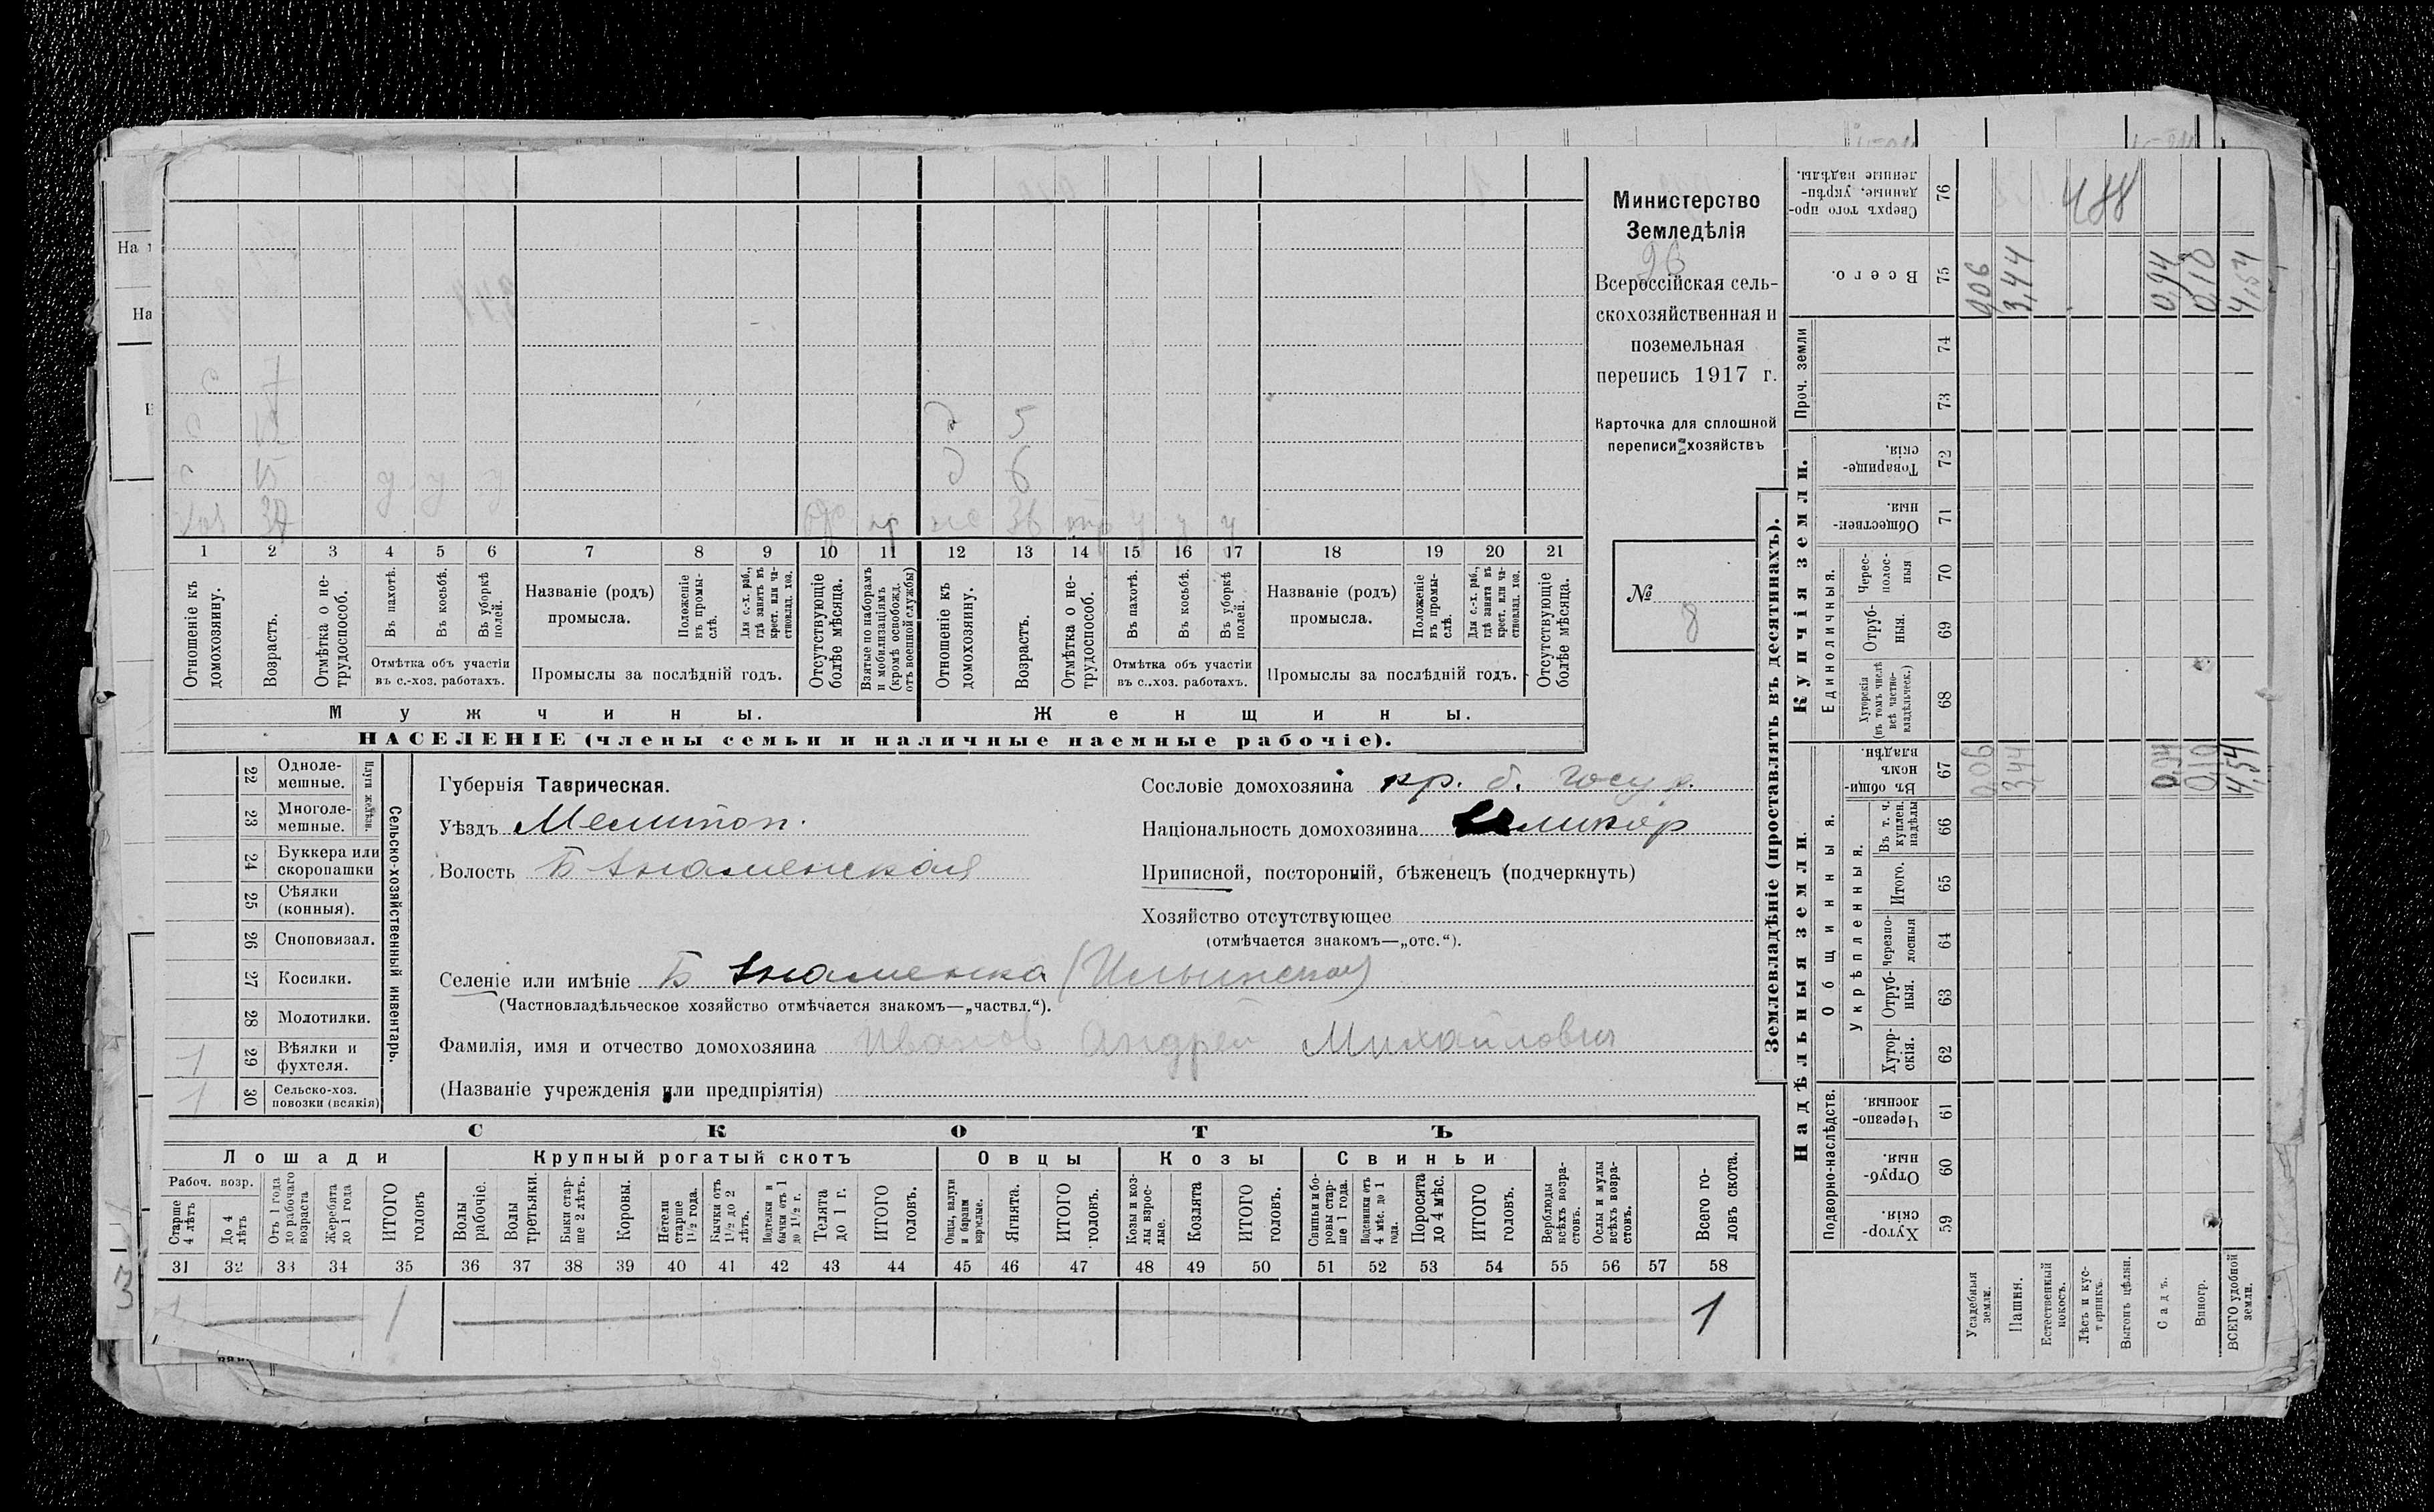 Министерство
Земледѣлія
26
Всероссійская сель-
скохозяйственная и
поземельная
перепись 1917 г.
Карточка для сплошной
переписи хозяйствъ
№ 8
с 7
с 12 д 5
с 15 у у у д 6
хоз 37 нр же 36 у у у
1 2 3 4 5 6 7 8 9 10 11 12 13 14 15 16 17 18 19 20 21
Отношеніе къ домохозяину.
Возрастъ.
Отмѣтка о не-трудоспособ.
Въ пахотѣ.
Въ косьбѣ.
Въ уборкѣ полей.
Отмѣтка объ участіи въ с.-хоз. работахъ.
Названіе (родъ) промысла.
Положеніе въ промы-слѣ.
Для с.-х. раб., гдѣ занятъ въ крест. или ча-стновлад. хоз.
Промыслы за послѣдній годъ.
Отсутствующіе болѣе мѣсяца.
Взятые по наборамъ и мобилизаціямъ (кромѣ освобожд. отъ военной службы)
Отношеніе къ домохозяину.
Возрастъ.
Отмѣтка о не-трудоспособ.
Въ пахотѣ.
Въ косьбѣ.
Въ уборкѣ полей.
Отмѣтка объ участіи въ с.-хоз. работахъ.
Названіе (родъ) промысла.
Положеніе въ промы-слѣ.
Для с.-х. раб., гдѣ занята въ крест. или ча-стновлад. хоз.
Промыслы за послѣдній годъ.
Отсутствующіе болѣе мѣсяца.
Мужчины. Женщины.
НАСЕЛЕНІЕ (члены семьи и наличные наемные рабочіе).
Сельско-хозяйственный инвентарь.
Плуги желѣзн.
22 Одноле-мешные.
23 Многоле-мешные.
24 Буккера или скоропашки
25 Сѣялки (конныя).
26 Сноповязал.
27 Косилки.
28 Молотилки.
1 29 Вѣялки и фухтеля.
1 30 Сельско-хоз. повозки (всякія)
Губернія Таврическая.
Уѣздъ Мелитоп.
Волость Б Знаменская
Сословіе домохозяина кр. б. госуд.
Національность домохозяина
Приписной, посторонній, бѣженецъ (подчеркнуть)
Хозяйство отсутствующее
(отмѣчается знакомъ—„отс.“).
Селеніе или имѣніе Б Знаменка (Ильинская)
(Частновладѣльческое хозяйство отмѣчается знакомъ—„частвл.“).
Фамилія, имя и отчество домохозяина Иванов Андрей Михайлович
(Названіе учрежденія или предпріятія)
СКОТЪ
Лошади Крупный рогатый скотъ Овцы Козы Свиньи
Рабоч. возр.
Старше 4 лѣтъ
До 4 лѣтъ
Отъ 1 года до рабочаго возраста
Жеребята до 1 года
ИТОГО головъ
Волы рабочіе.
Волы третьяки.
Быки стар-ше 2 лѣтъ.
Коровы.
Нетели старше 1½ года.
Бычки отъ 1½ до 2 лѣтъ.
Подтелки и бычки отъ 1 до 1½ г.
Телята до 1 г.
ИТОГО головъ.
Овцы, валухи и бараны взрослые.
Ягнята.
ИТОГО головъ.
Козы и коз-лы взрос-лые.
Козлята
ИТОГО головъ.
Свиньи и бо-ровы стар-ше 1 года.
Подсвинки отъ 4 мѣс. до 1 года.
Поросята до 4 мѣс.
ИТОГО головъ.
Верблюды всѣхъ возра-стовъ.
Ослы и мулы всѣхъ возра-стовъ.
Всего го-ловъ скота.
31 32 33 34 35 36 37 38 39 40 41 42 43 44 45 46 47 48 49 50 51 52 53 54 55 56 57 58
1 1 1
Землевладѣніе (проставлять въ десятинахъ).
Купчія земли.
Надѣльныя земли.
Проч. земли
Единоличныя.
Общинныя.
Укрѣпленныя.
Подворно-наслѣдств.
76 Сверхъ того про-данные, укрѣп-ленные надѣлы.
75 Всего.
74
73
72 Товарище-скія.
71 Обществен-ныя.
70 Черес-полос-ныя
69 Отруб-ныя.
68 Хуторскія (въ томъ числѣ всѣ частно-владѣльческ.)
67 Въ общин-номъ владѣн.
66 Въ т. ч. куплен. надѣлы
65 Итого.
64 Черезпо-лосныя
63 Отруб-ныя.
62 Хутор-скія.
61 Черезпо-лосныя.
60 Отруб-ныя.
59 Хутор-скія.
Усадебныя земли. 0,06 0,06
Пашня. 3,44 3,44
Естественный покосъ.
Лѣсъ и кус-тарникъ.
Выгонъ цѣлин.
Садъ. 0,94 0,94
Виногр. 0,10 0,10
ВСЕГО удобной земли. 4,54 4,54